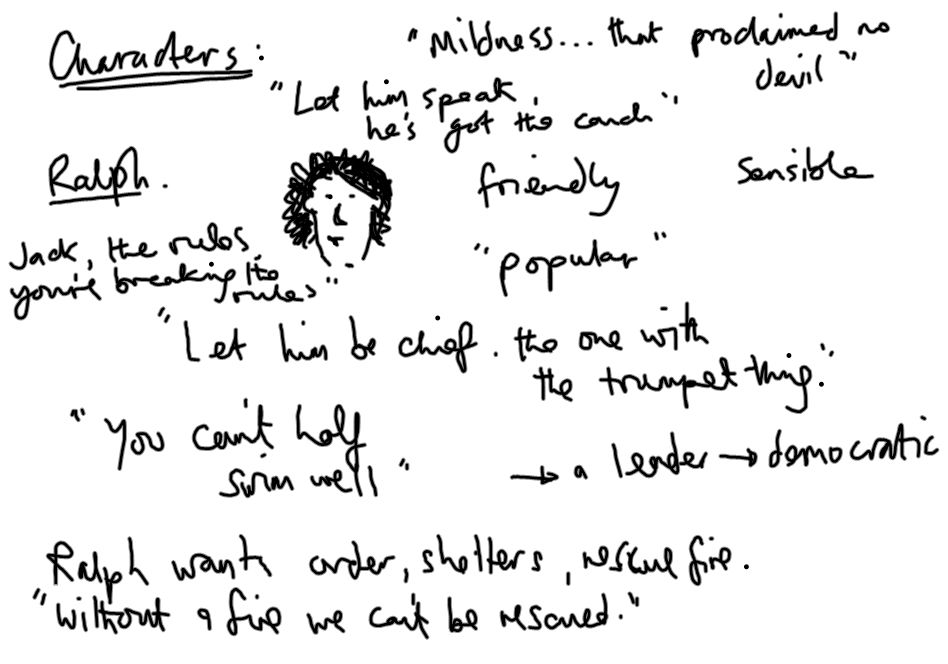 Characters:
"Mildness... that proclaimed no
devil"
"Let him speak,
he's got the conch"
Ralph.
friendly
sensible
Jack, the rules,
you're breaking the
rules"
"popular"
"Let him be chief. the one with
the trumpet thing."
"You can't half
swim well"
→ a leader → democratic
Ralph wants order, shelters, rescue fire.
"without a fire we can't be rescued."